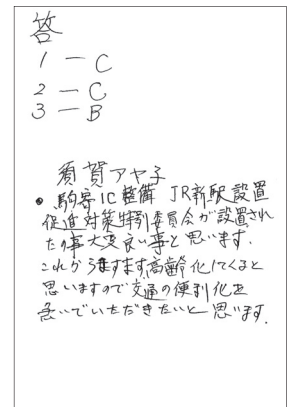 答
1 ー C
2 ー C
3 ー B
須賀アヤ子
• 駒寄IC整備 JR新駅設置
促進対策特別委員会が設置され
たの事大変良い事と思います.
これからますます高齢化してくると
思いますので交通の便利化を
急いでいただきたいと思います.